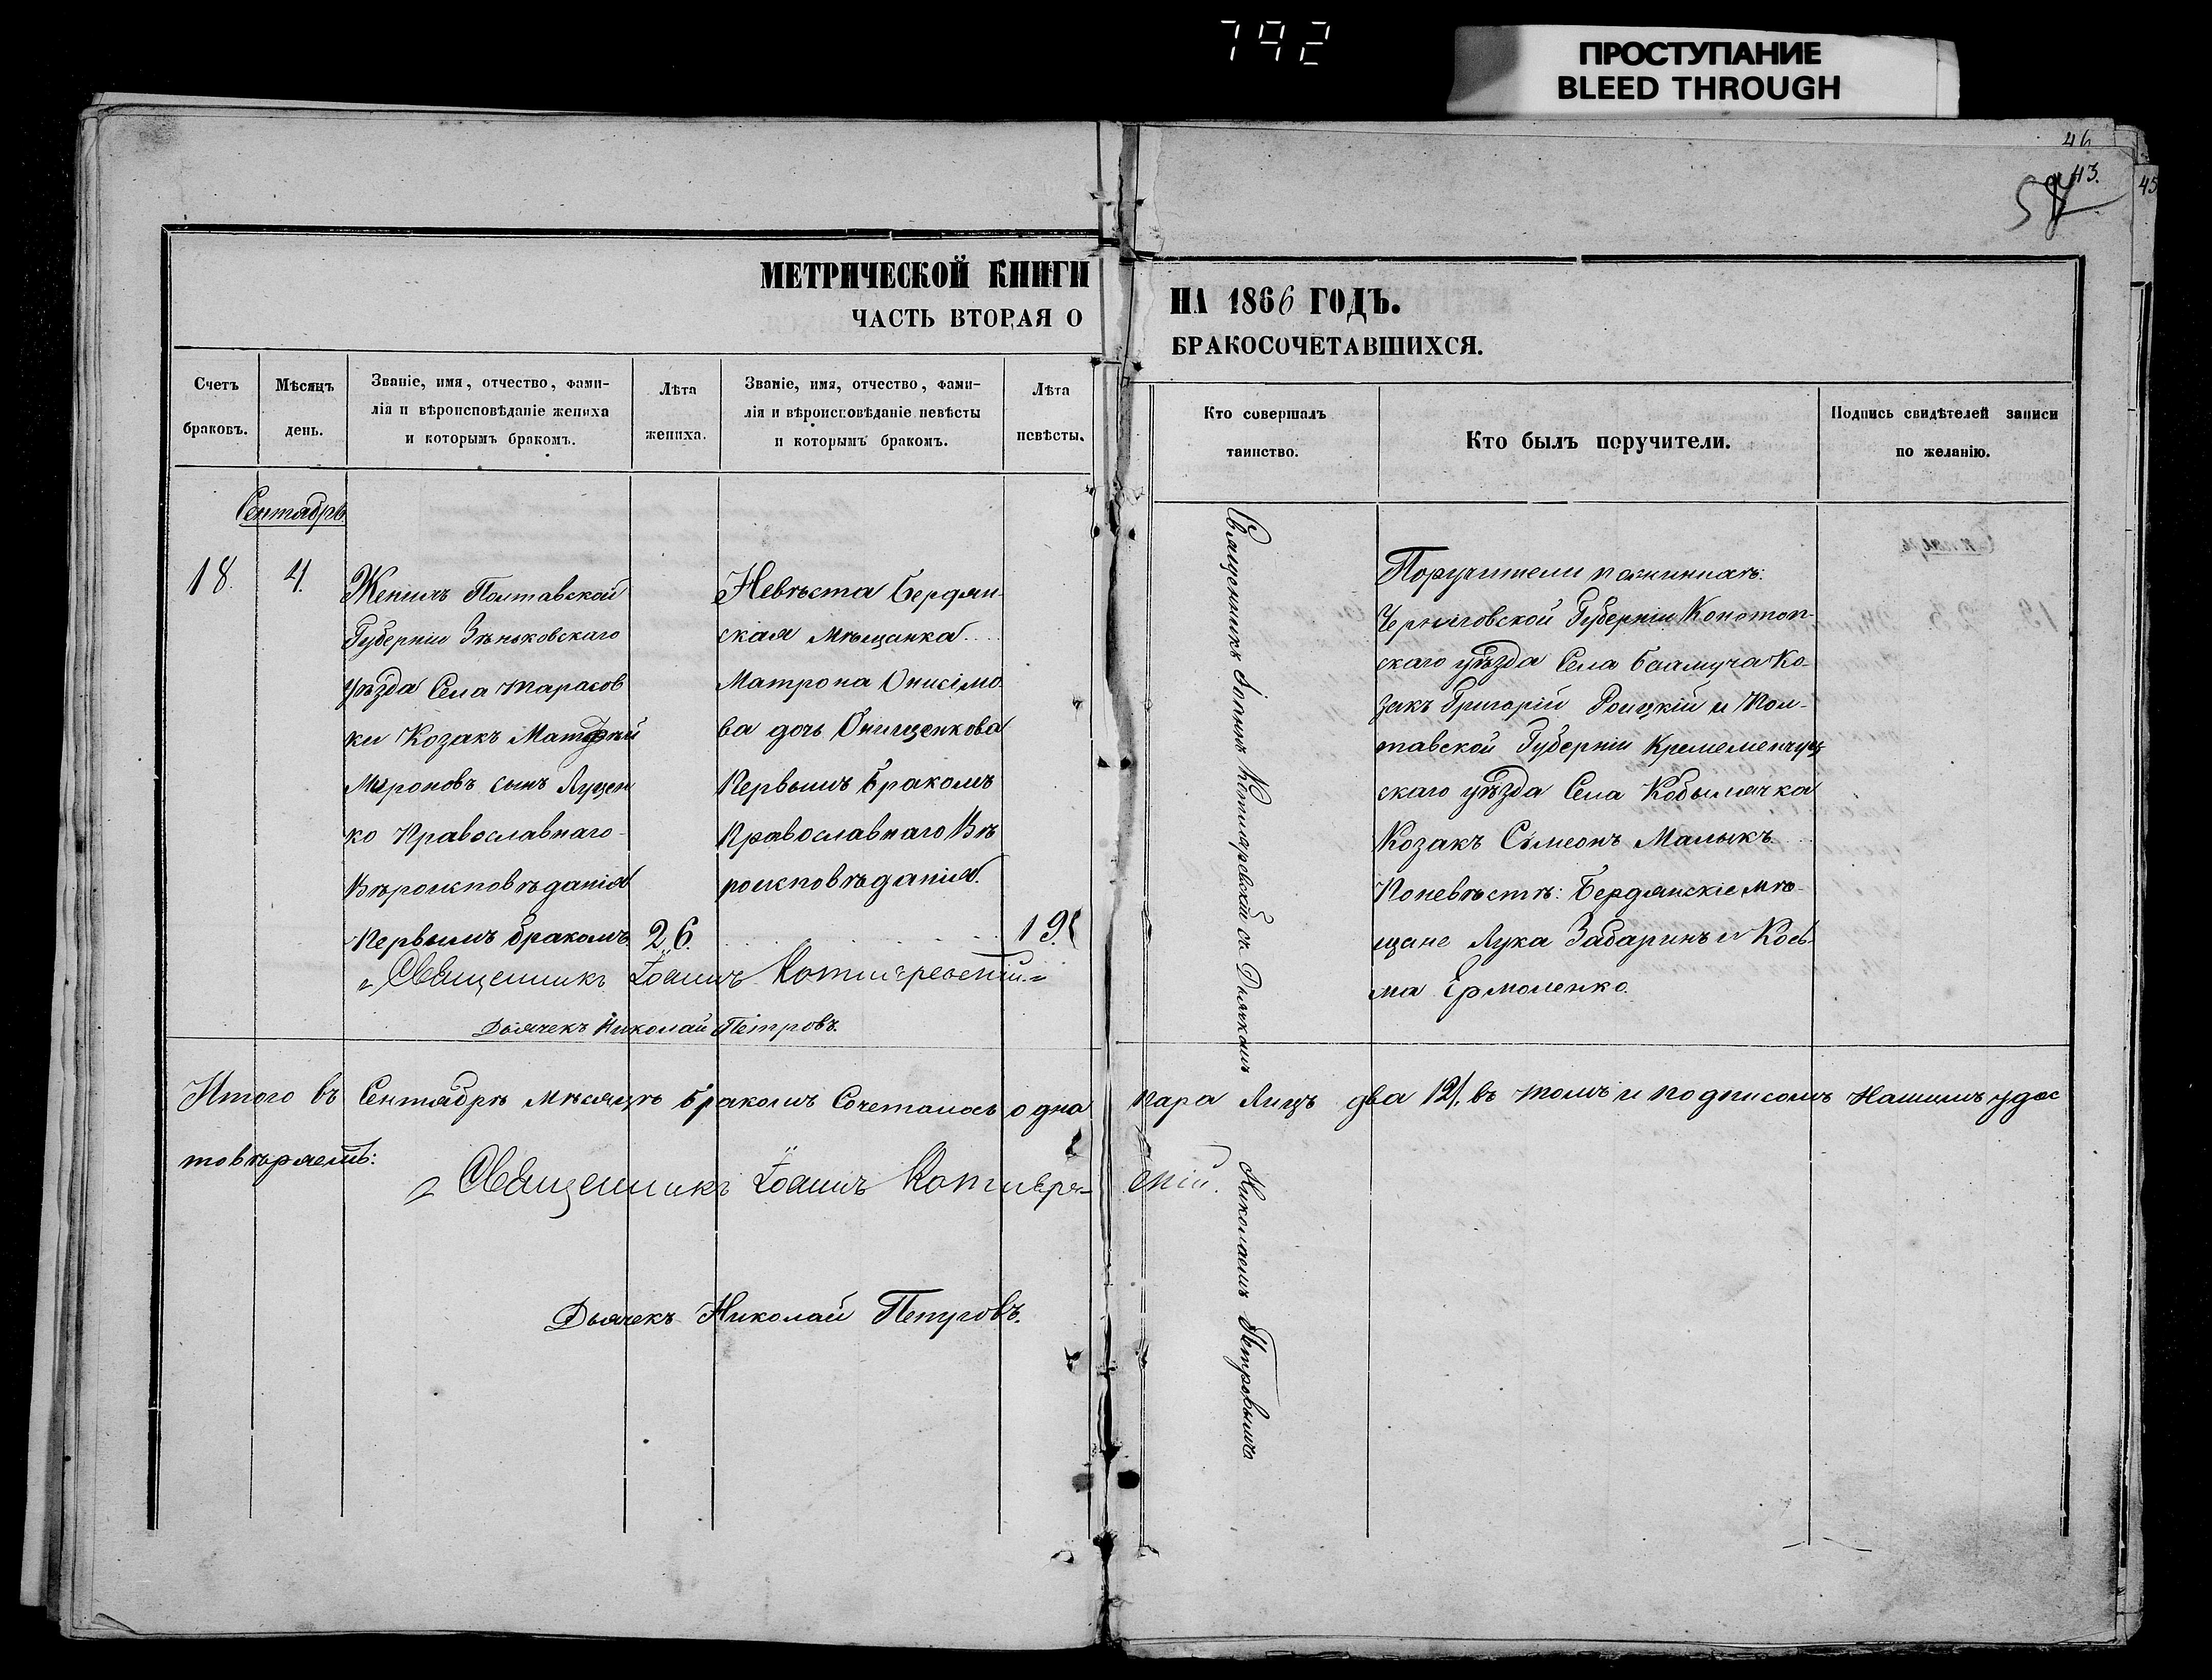 792
ПРОСТУПАНИЕ
BLEED THROUGH
46
43.
45
МЕТРИЧЕСКОЙ КНИГИ
ЧАСТЬ ВТОРАЯ О
НА 1866 ГОДЪ.
БРАКОСОЧЕТАВШИХСЯ.
Счетъ
браковъ.
Мѣсяцъ
день.
Званіе, имя, отчество, фами-
лія и вѣроисповѣданіе жениха
и которымъ бракомъ.
Лѣта
жениха.
Званіе, имя, отчество, фами-
лія и вѣроисповѣданіе невѣсты
и которымъ бракомъ.
Лѣта
невѣсты.
Кто совершалъ
таинство.
Кто былъ поручители.
Подпись свидѣтелей записи
по желанію.
Сентябрь
18.
4.
Женихъ Полтавской
Губерніи Зѣньковскаго
уѣзда Села Тарасов
ки Козакъ Матфѣй
Мироновъ сынъ Луцен
ко Православнаго
Вѣроисповѣданія
Первымъ бракомъ
26.
Невѣста Бердян-
ская мѣщанка
Матрона Онисимо-
ва дочь Онищенкова
Первымъ бракомъ
Православнаго Вѣ
роисповѣданія.
19.
Священникъ Іоаннъ Котляревскій.
Дьячекъ Николай Петровъ.
Священникъ Іоаннъ Котляревскій съ Дьячкомъ Николаемъ Петровымъ
Поручители по женихѣ:
Черниговской Губерніи Конотоп-
скаго уѣзда Села Ко-
закъ Григорій Роицкій и Пол-
тавской Губерніи Кремеменчуц
скаго уѣзда Села Кобылячка
Козакъ Сѵмеонъ Малыкъ.
По невѣстѣ: Бердянскіе мѣ-
щане Лука Забаринъ и Кось-
ма Ермоленко.
Итого въ Сентябрѣ мѣсяцѣ бракомъ Сочеталось одна пара Лицъ два /2/, въ томъ и подписомъ Нашимъ удос
товѣряемъ:
Священникъ Іоаннъ Котляре- скій.
Дьячекъ Николай Петровъ.